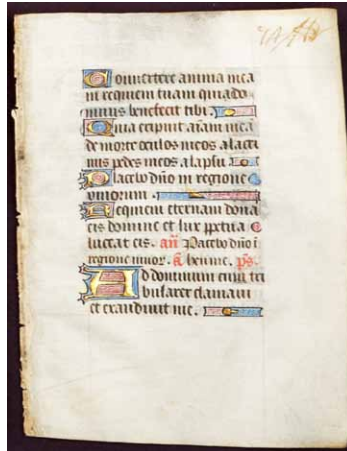 Conuertere anima mea
in requiem tuam quia do
minus benefecit tibi.
Quia eripuit aīam mea
de morte oculos meos a lacri
mis pedes meos a lapsu
Placebo dño in regione
uiuorum.
Requiem eternam dona
eis domine et lux ppetua
luceat eis. añ Placebo dño ī
regione uiuor. ā heu me. ps.
Ad dominum cum tri
bularer clamaui
et exaudiuit me.